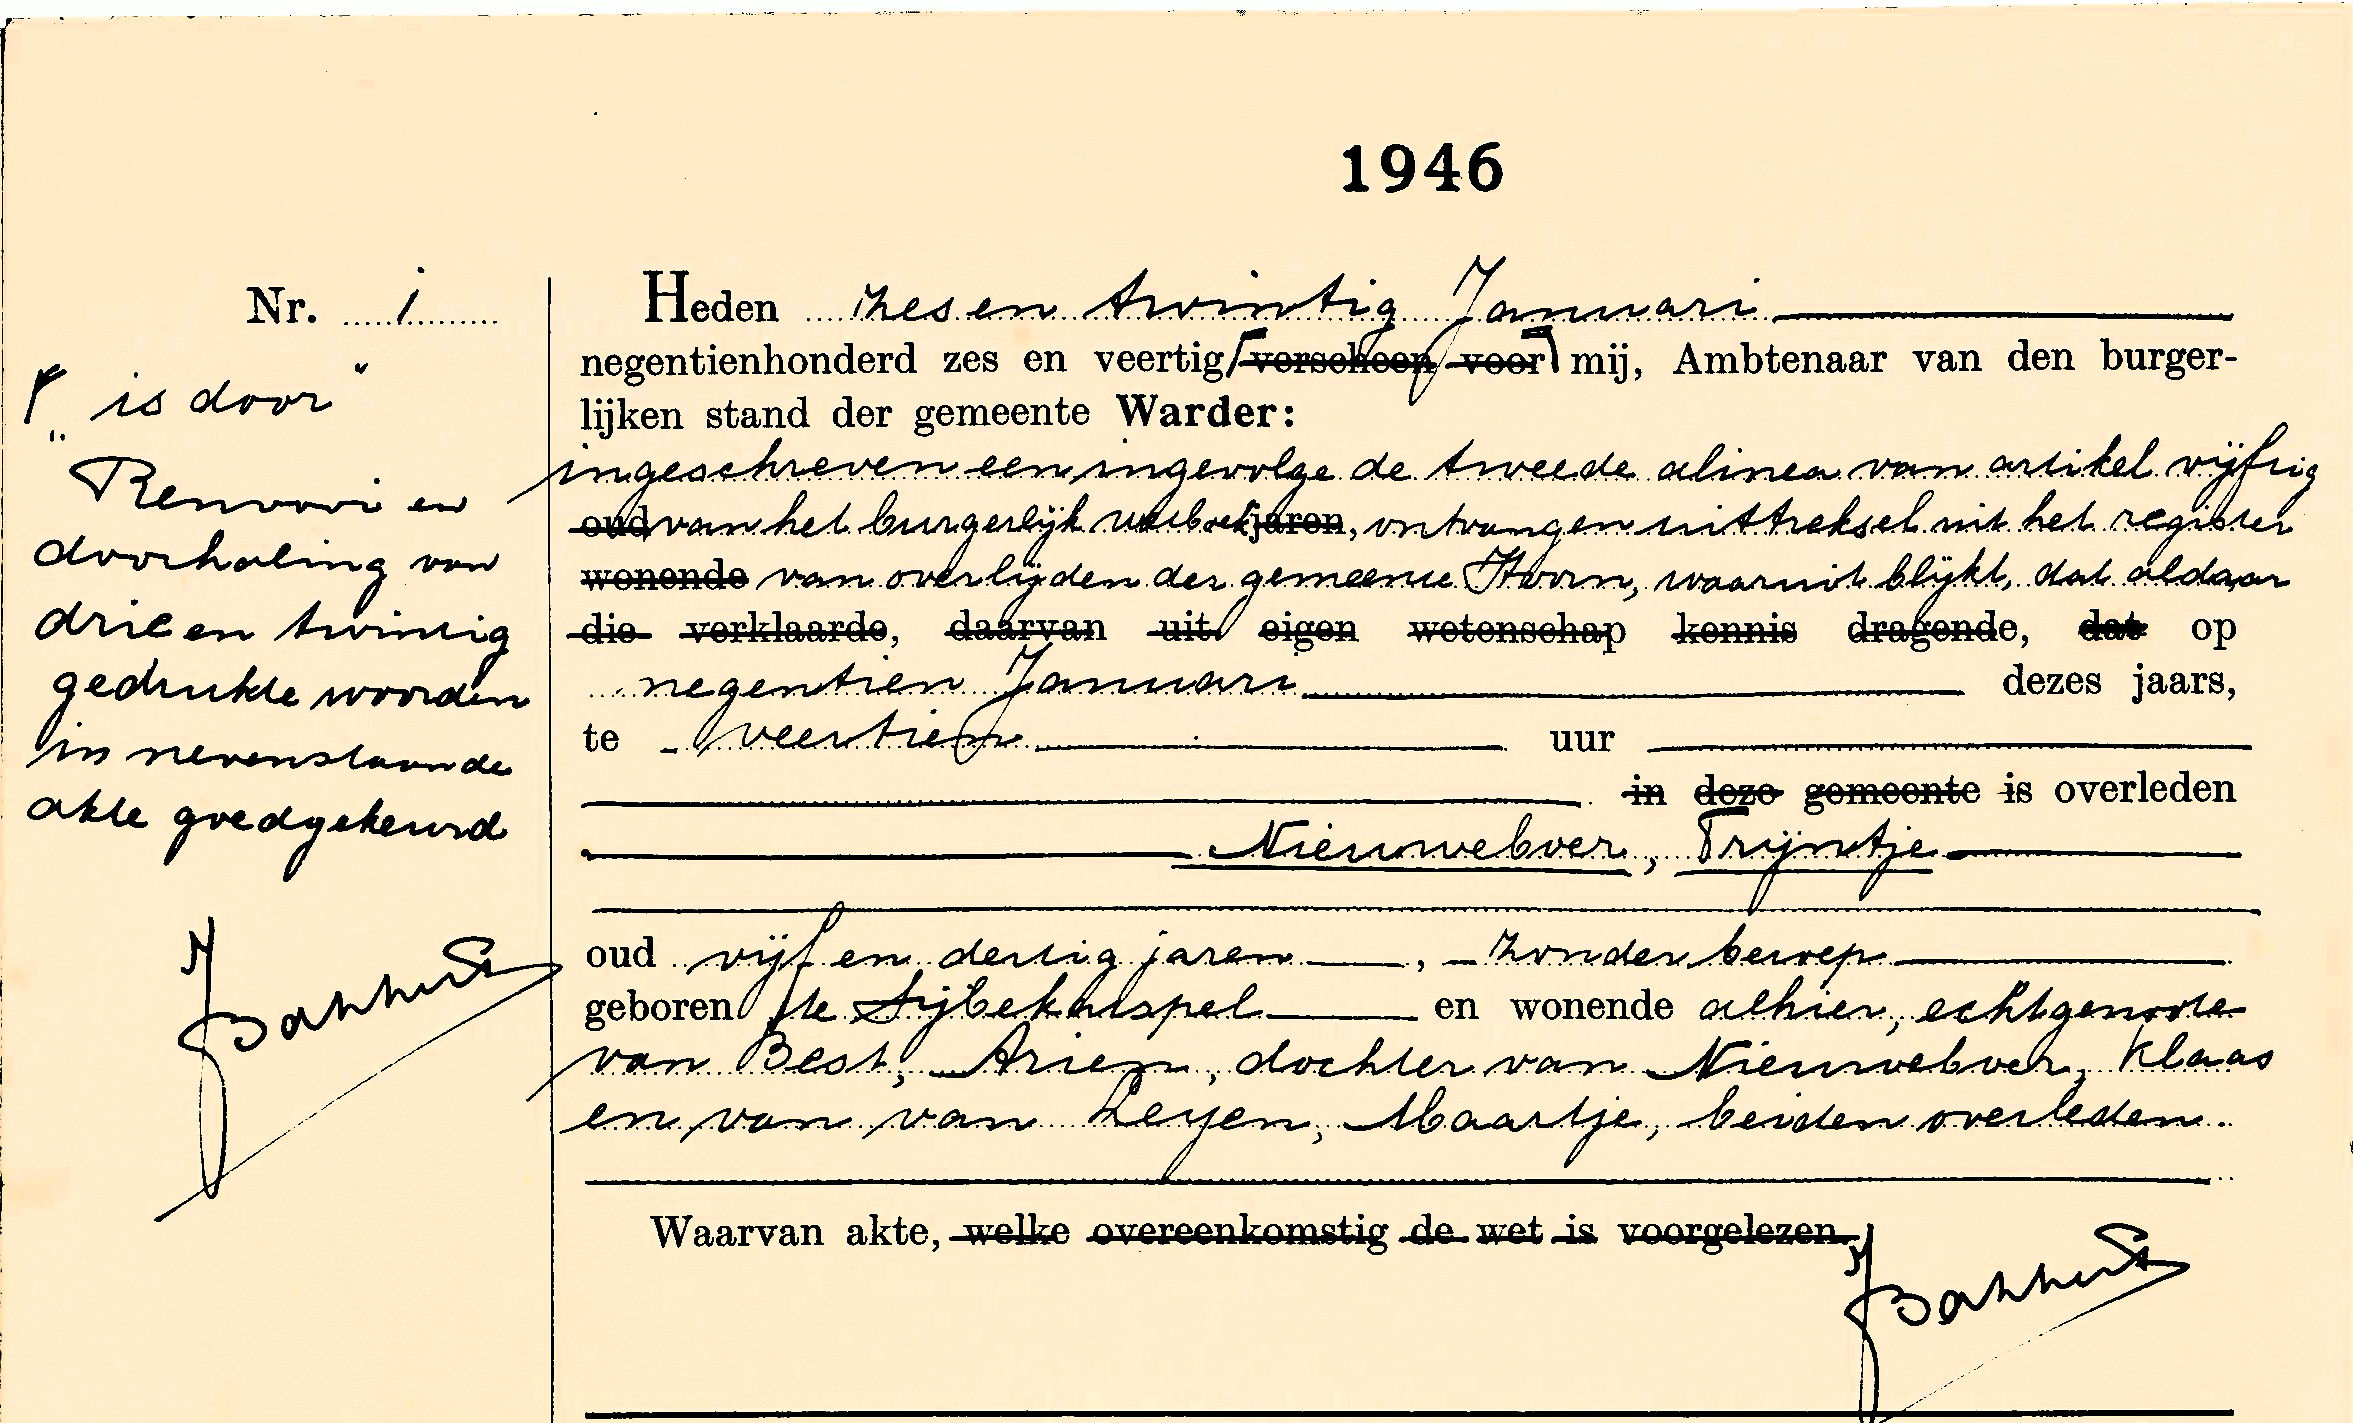 1946
Nr. 1
Γ „ is door "
Renvooi en
doorhaling van
drie en twintig
gedrukte woorden
in nevenstaande
akte goedgekeurd
Heden zes en twintig Januari
negentienhonderd zes en veertig Γ verscheen voor mij, Ambtenaar van den burger-
lijken stand der gemeente Warder:
ingeschreven een ingevolge de tweede alinea van artikel vijftig
oud van het burgerlijk wetboek jaren, ontvangen uittreksel uit het register
wonende van overlijden der gemeente Hoorn, waaruit blijkt, dat aldaar
die verklaarde, daarvan uit eigen wetenschap kennis dragende, dat op
negentien Januari dezes jaars,
te veertien uur
in deze gemeente is overleden
Nieuweboer, Trijntje
oud vijf en dertig jaren, zonder beroep
geboren te Sijbekarspel en wonende alhier, echtgenote
van Best, Arien, dochter van Nieuweboer, Klaas
en van van Leyen, Maartje, beiden overleden.
Waarvan akte, welke overeenkomstig de wet is voorgelezen.